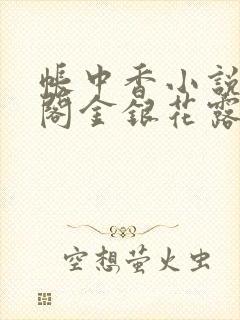 帳中香小說
閣金銀花露
空想萤火虫